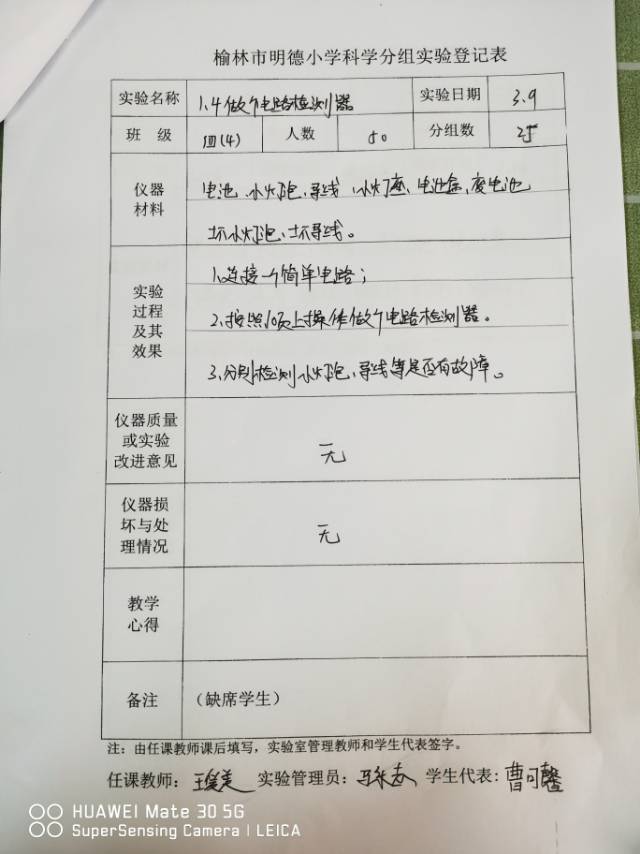 榆林市明德小学科学分组实验登记表
实验名称 1.4做个电路检测器 实验日期 3.9
班 级 四(4) 人数 50 分组数 25
仪器材料 电池、小灯泡、导线、小灯座、电池盒、废电池
坏小灯泡、坏导线。
实验过程及其效果 1.连接一个简单电路；
2.按照10页上操作做个电路检测器。
3.分别检测小灯泡、导线等是否有故障。
仪器质量
或实验
改进意见 无
仪器损
坏与处
理情况 无
教学
心得
备注 (缺席学生)
注：由任课教师课后填写，实验室管理教师和学生代表签字。
任课教师： 实验管理员： 学生代表: 曹可馨
HUAWEI Mate 30 5G
SuperSensing Camera | LEICA